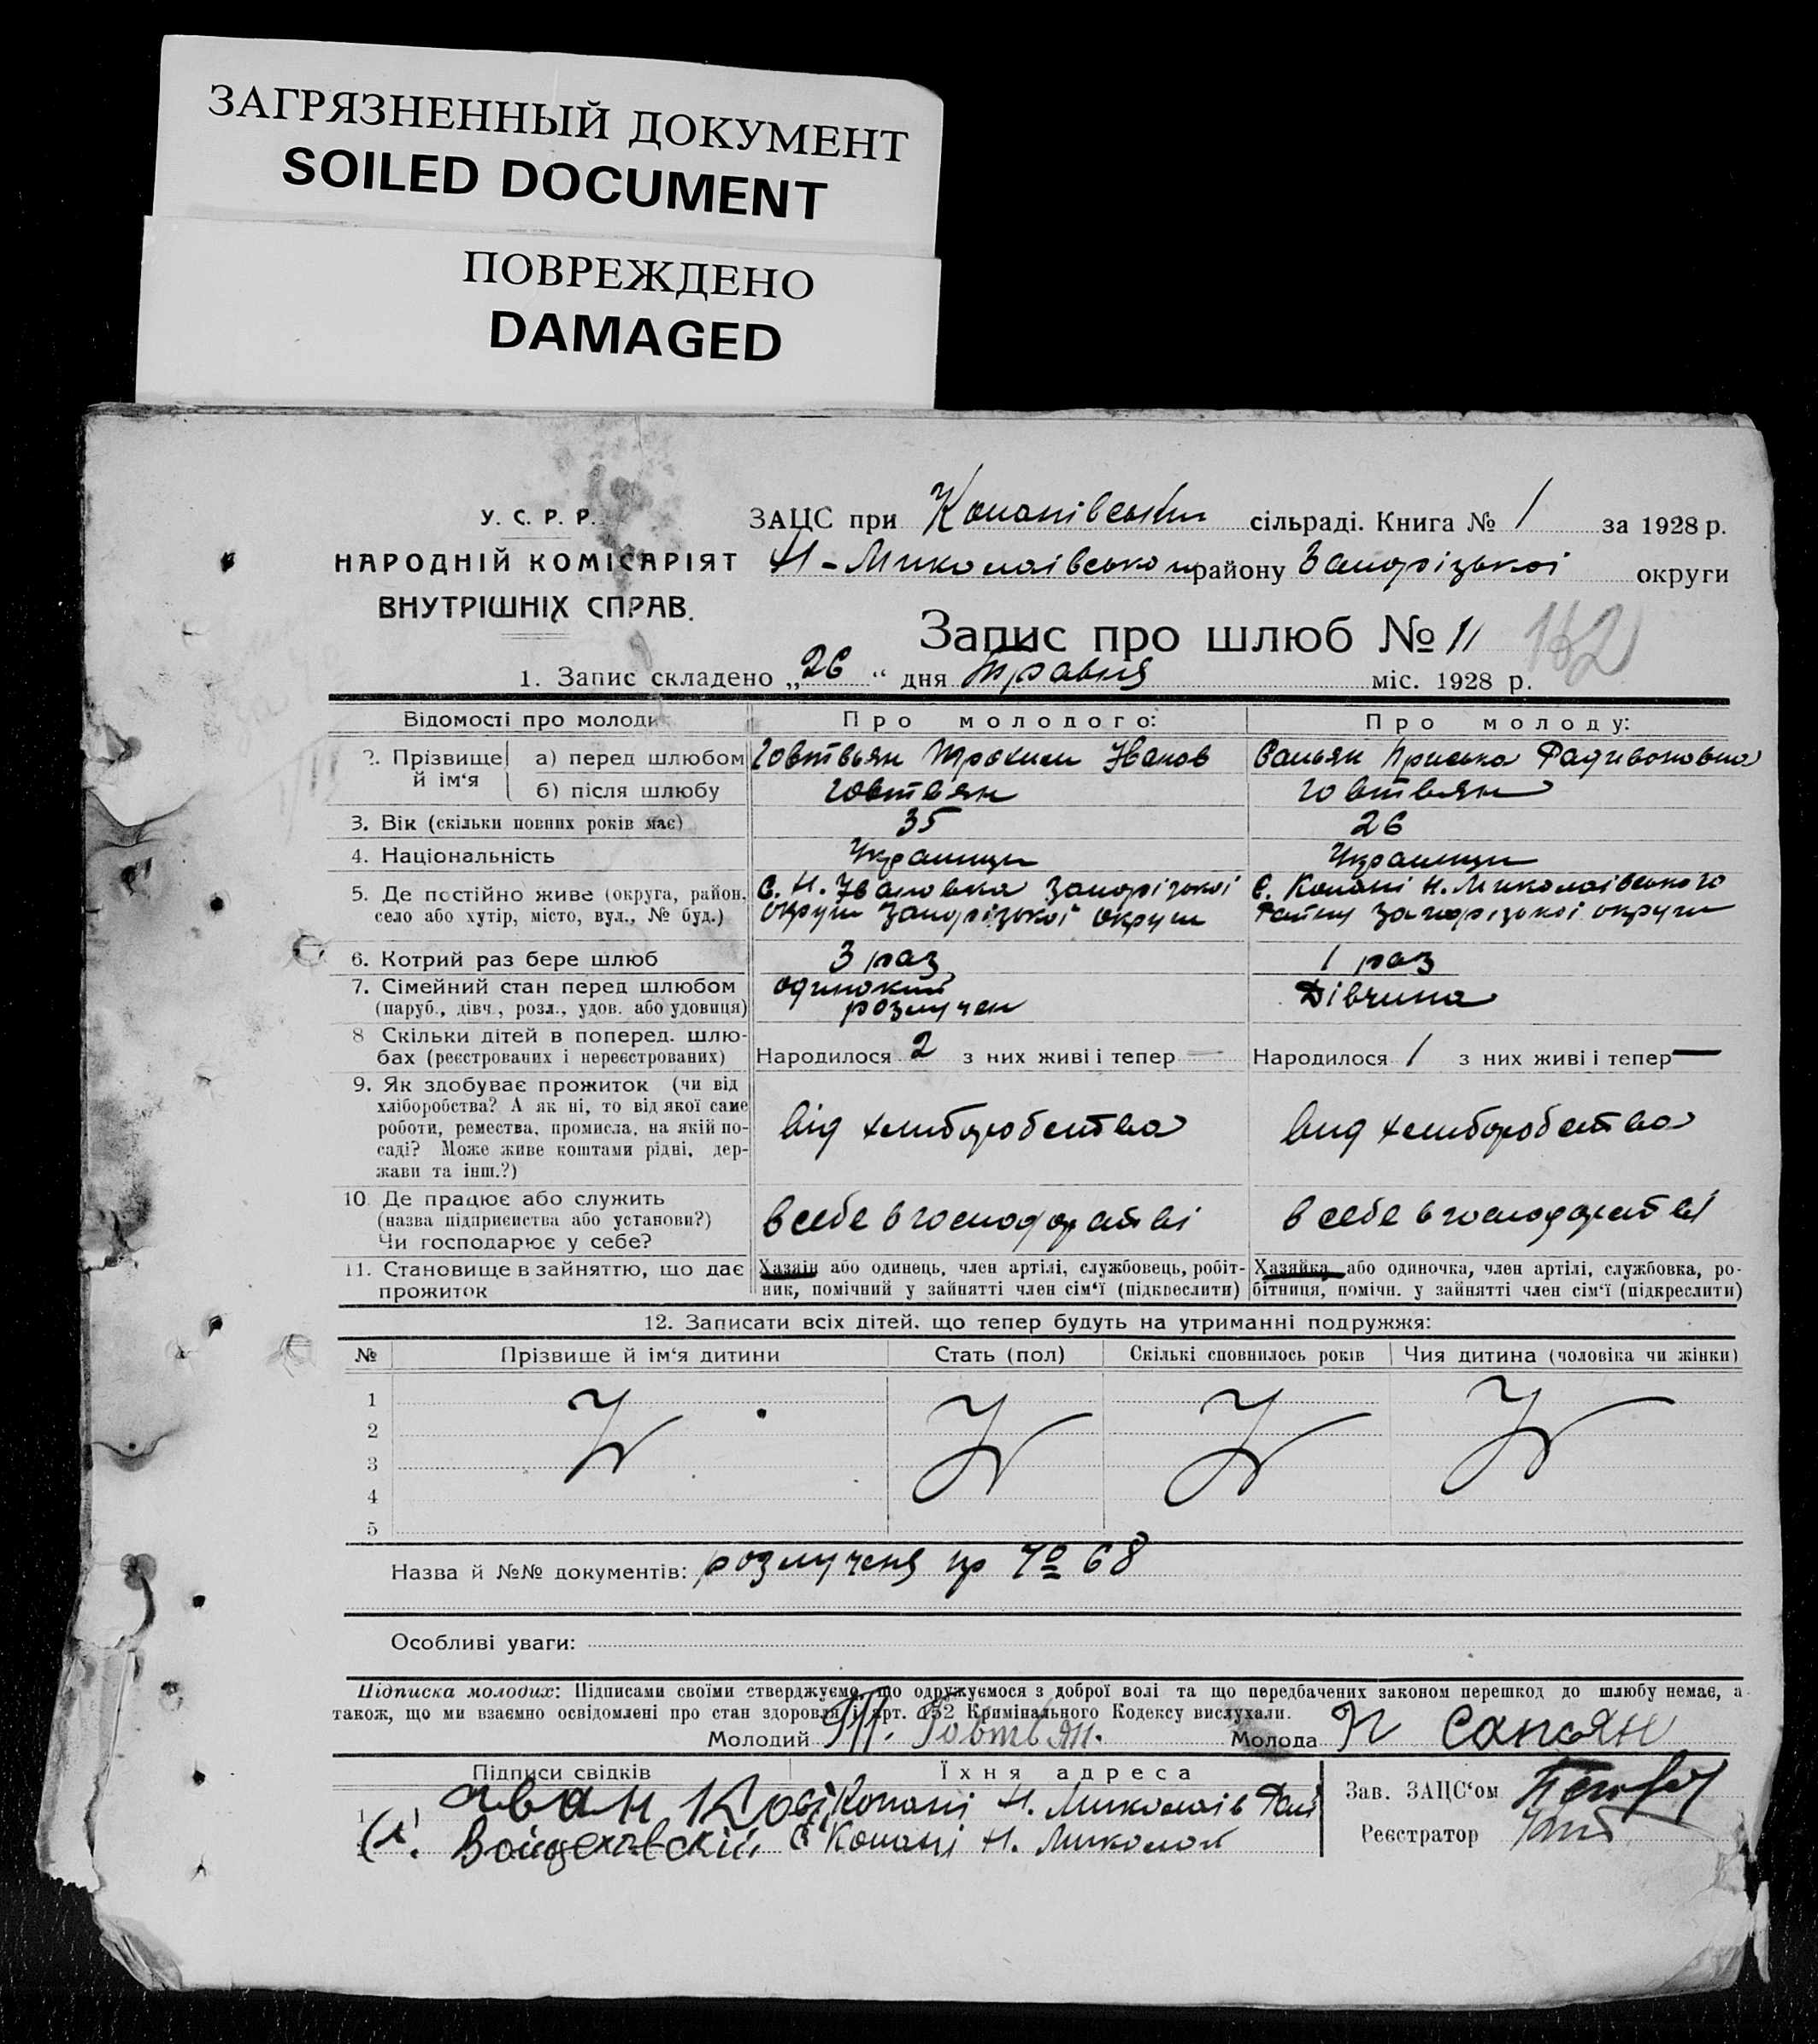 ЗАГРЯЗНЕННЫЙ ДОКУМЕНТ
SOILED DOCUMENT
ПОВРЕЖДЕНО
DAMAGED
У. С. Р. Р.
НАРОДНІЙ КОМІСАРІЯТ
ВНУТРІШНІХ СПРАВ.
ЗАЦС при Копанівськи сільраді. Книга № 1 за 1928 р.
Н-Миколаівсько району Запорізькоі округи
Запис про шлюб № 11 162
1. Запис складено „26“ дня Травня міс. 1928 р.
Відомості про молоди
Про молодого:
Про молоду:
2. Прізвище й ім‘я
а) перед шлюбом
Говтвьян Трохим Иванов
Сапьян Приська Радивоновна
б) після шлюбу
Говтвян
Говтвян
3. Вік (скільки повних років має)
35
26
4. Національність
Украинци
Украинци
5. Де постійно живе (округа, район, село або хутір, місто, вул., № буд.)
С. Н. Ивановка Запорізькоі
округи Запорізькоі округи
С. Копані Н. Миколаівського
Району Запорізькоі округи
6. Котрий раз бере шлюб
3 раз
1 раз
7. Сімейний стан перед шлюбом
(паруб., дівч., розл., удов. або удовиця)
одинокий
розлучен
Дівчина
8 Скільки дітей в поперед. шлю-
бах (реєстрованих і нереєстрованих)
Народилося 2 з них живі і тепер —
Народилося 1 з них живі і тепер —
9. Як здобуває прожиток (чи від
хліборобства? А як ні, то від якої саме
роботи, ремества, промисла, на якій по-
саді? Може живе коштами рідні, дер-
жави та інш.?)
від хлиборобства
вид хлиборобства
10 Де працює або служить
(назва підприємства або установи?)
Чи господарює у себе?
в себе в господарстві
в себе в господарстві
11. Становище в зайняттю, що дає
прожиток
Хазяін або одинець, член артілі, службовець, робіт-
ник, помічний у зайнятті член сім‘ї (підкреслити)
Хазяйка або одиночка, член артілі, службовка, ро-
бітниця, помічн. у зайнятті член сім‘ї (підкреслити)
12. Записати всіх дітей. що тепер будуть на утриманні подружжя:
№ Прізвище й ім‘я дитини Стать (пол) Скількі сповнилось років Чия дитина (чоловіка чи жінки)
1
2
3
4
5
Назва й №№ документів: розлученя пр № 68
Особливі уваги:
Підписка молодих: Підписами своїми стверджуємо, що одружуємося з доброї волі та що передбачених законом перешкод до шлюбу немає, а
також, що ми взаємно освідомлені про стан здоровля і арт. 152 Кримінального Кодексу вислухали.
Молодий Говтвян.
Молода П Сапьян
Підписи свідків
Їхня адреса
1 Иван
Копані Н. Миколаів Рай
Войцеховский
С Копані Н. Миколай
Зав. ЗАЦС‘ом
Реєстратор